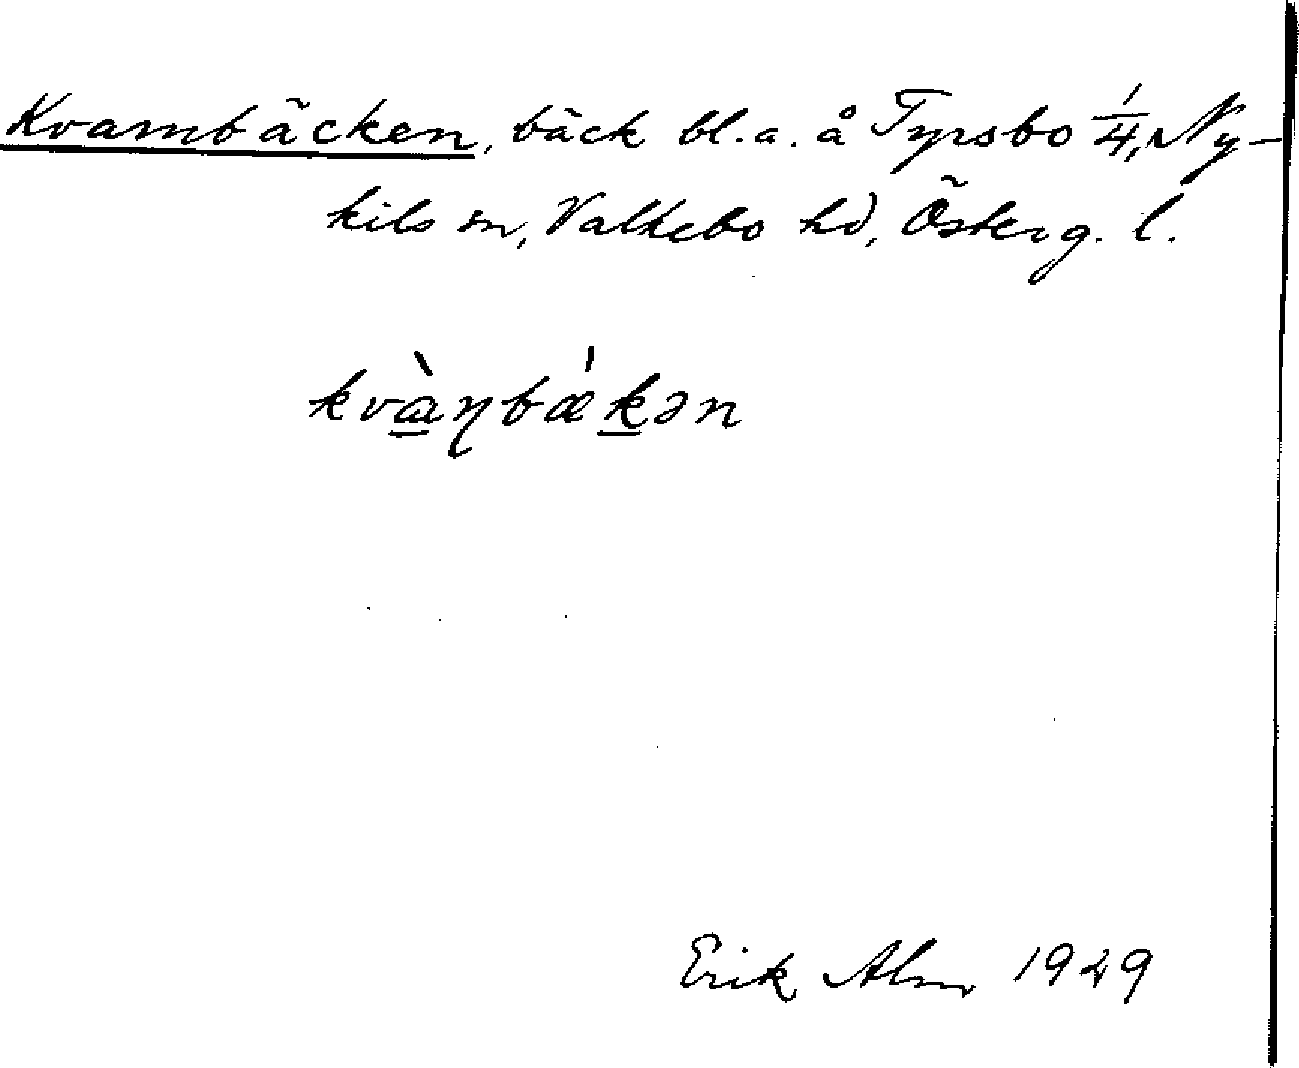 Kvarnbäcken, bäck bl.a. å Tyrsbo 1/4, Ny-
kils sn, Valkebo hd, Österg. l.
kvàɳbǽkən
Erik Alm 1929